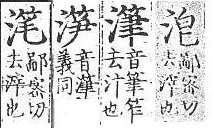 鄙密切
去滓也
潷
音筆笮
去汁也
音潷
義同
滗
鄙密切
去滓也